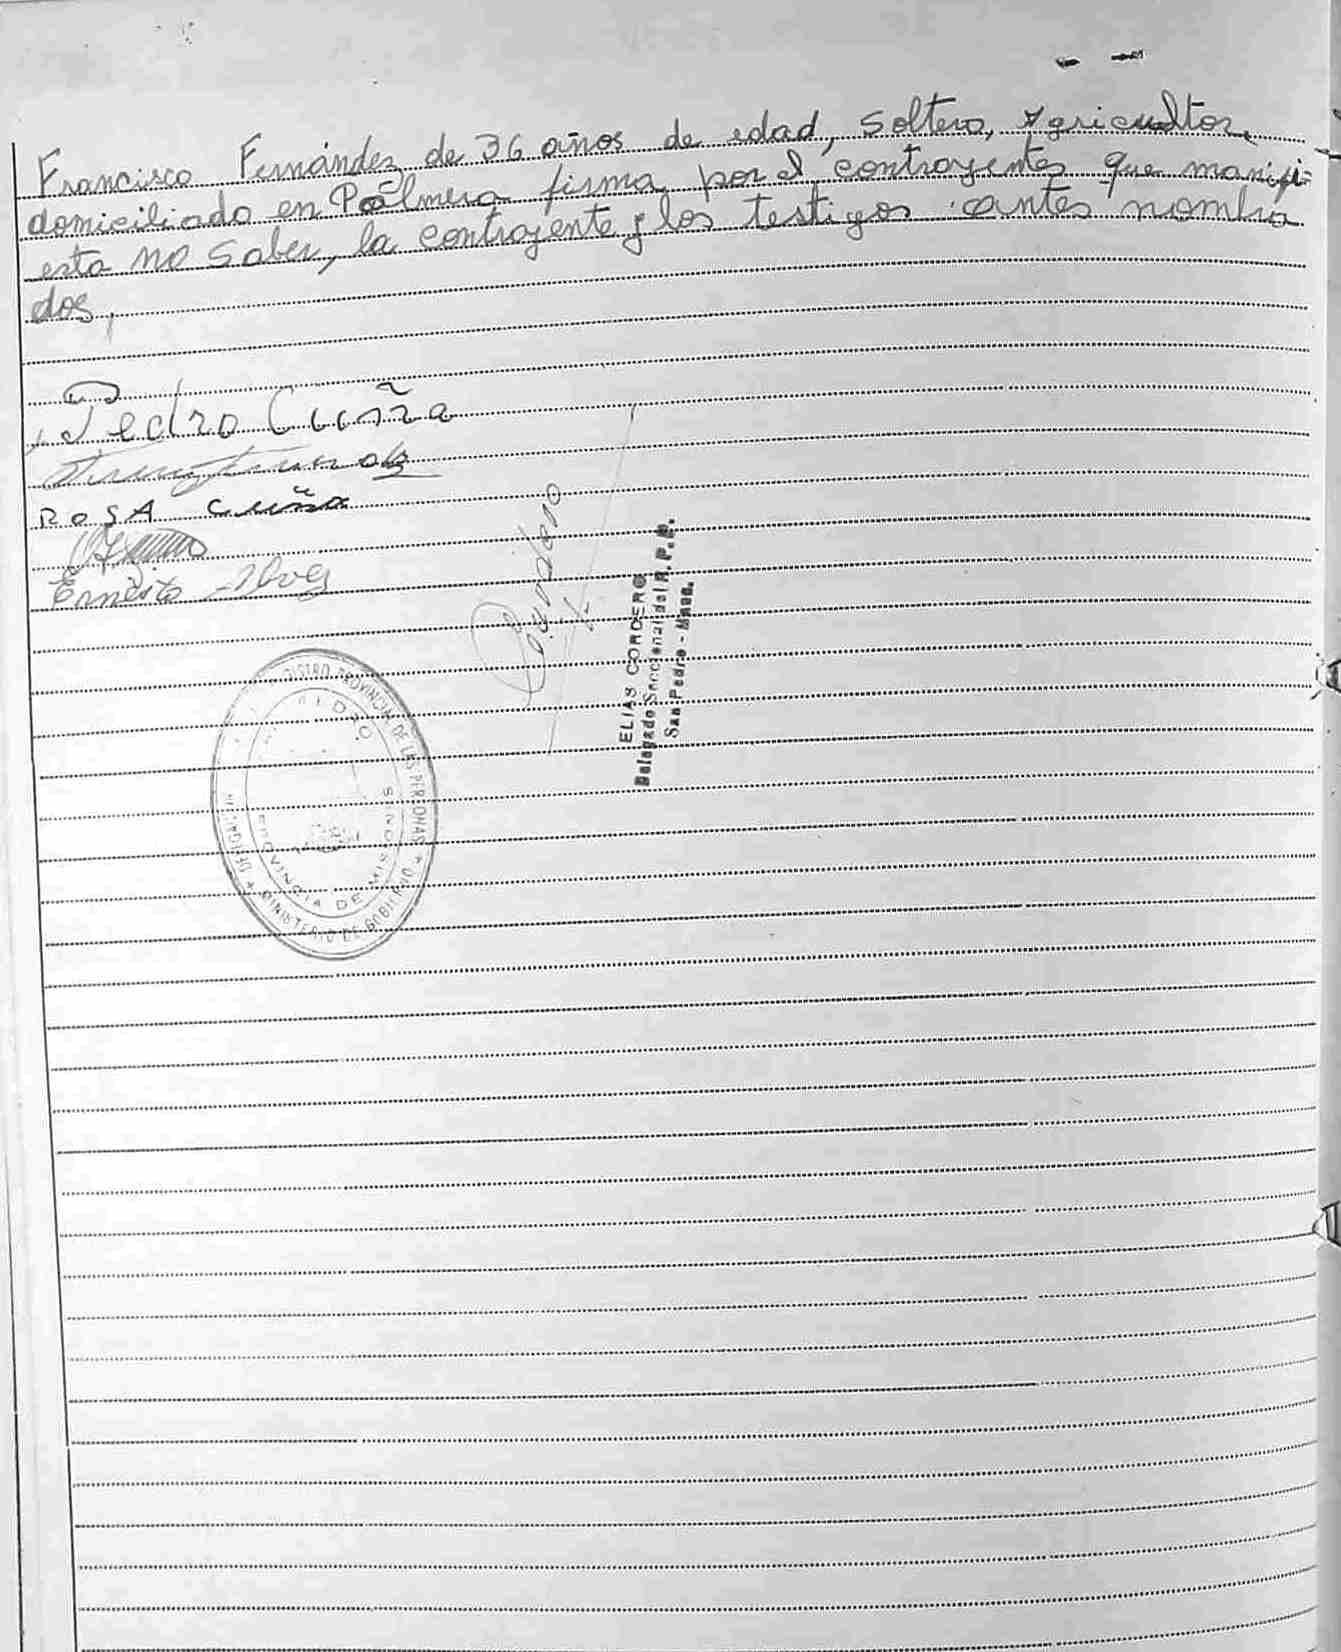 Francisco Fernández de 36 años de edad, soltero, agricultor,
domiciliado en Palmera firma por el contrayentes que manifi-
esta no saber, la contrayente y los testigos antes nombra
dos,
Pedro Cuña
ROSA Cuña
Ernesto Alves
Cordero
ELIAS CORDERO
Delegado Seccional del R. P. P.
San Pedro - Mnes.
REGISTRO PROVINCIAL DE LAS PERSONAS
MINISTERIO DE GOBIERNO
PEDRO
PROVINCIA DE MISIONES